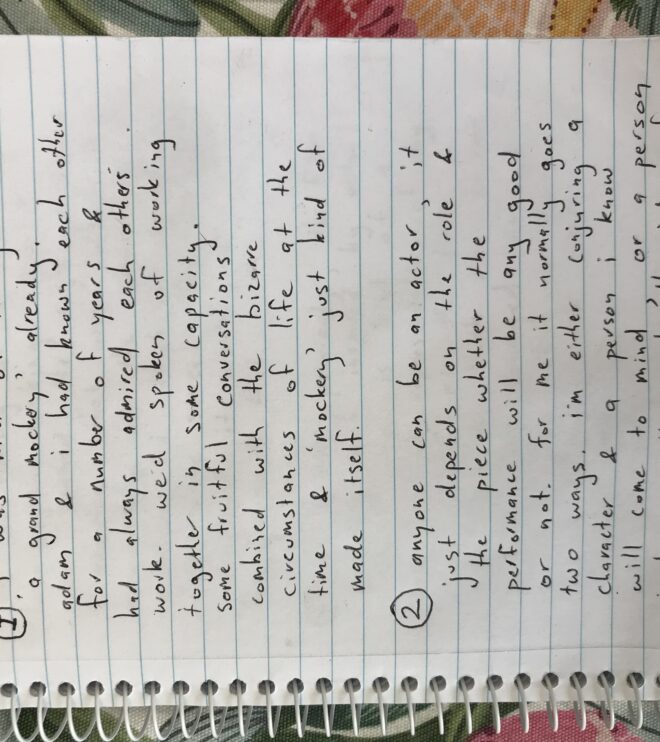 1
a grand mockery' already.
adam & i had known each other
for a number of years &
had always admired each others'
work. we'd spoken of working
together in some capacity.
some fruitful conversations
combined with the bizarre
circumstances of life at the
time & 'mockery' just kind of
made itself.
2 anyone can be an actor, it
just depends on the role &
the piece whether the
performance will be any good
or not. for me it normally goes
two ways. i'm either conjuring a
character & a person i know
will come to mind, or a person